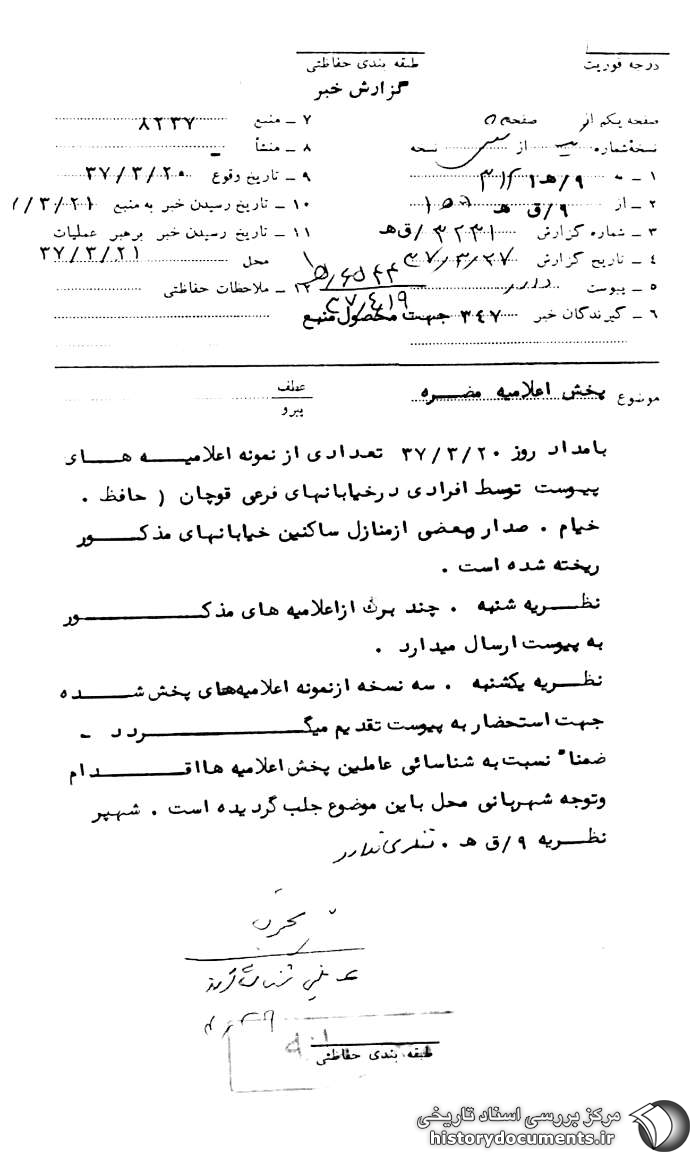 درجه فوریت
طبقه بندی حفاظتی
گزارش خبر
صفحه یکم از صفحه
نسخه شماره از نسخه
۱ ــ به ۹/هـ۱ ۳۱۲
۲ ــ از ۹/ق هـ
۳ ــ شماره گزارش ۳۲۳۱/ق هـ
۴ ــ تاریخ گزارش ۳۷/۳/۲۷
۵ ــ پیوست دارد
۶ ــ گیرندگان خبر ۳۴۷ جهت محصول منبع
۷ ــ منبع ۸۲۳۷
۸ ــ منشأ ــ
۹ ــ تاریخ وقوع ۳۷/۳/۲۰
۱۰ ــ تاریخ رسیدن خبر به منبع ۷/۳/۲۱
۱۱ ــ تاریخ رسیدن خبر برهبر عملیات
محل ۳۷/۳/۲۱
۱۲ ــ ملاحظات حفاظتی
۳۷/۴/۱۹
موضوع پخش اعلامیه مضره
عطف
پیرو
بامداد روز ۳۷/۳/۲۰ تعدادی از نمونه اعلامیـــه هـــای
پیـوست توسط افرادی درخیابانهای فرعی قوچان ( حافظ .
خیام . صدار وبعضی ازمنازل ساکنین خیابانهای مذکـــور
ریخته شده است .
نظـــریه شنبه . چند برگ ازاعلامیه های مذکـــــور
به پیوست ارسال میدارد .
نظـــریه یکشنبه . سه نسخه ازنمونه اعلامیه‌های پخش شـــده
جهت استحضار به پیوست تقدیم میگـــــردد ــ
ضمنا" نسبت به شناسائی عاملین پخش اعلامیه ها اقـــدام
وتوجه شهربانی محل باین موضوع جلب گردیده است . شهپر
نظـــریه ۹/ق هـ . نظری ندارد
طبقه بندی حفاظتی
مرکز بررسی اسناد تاریخی
historydocuments.ir